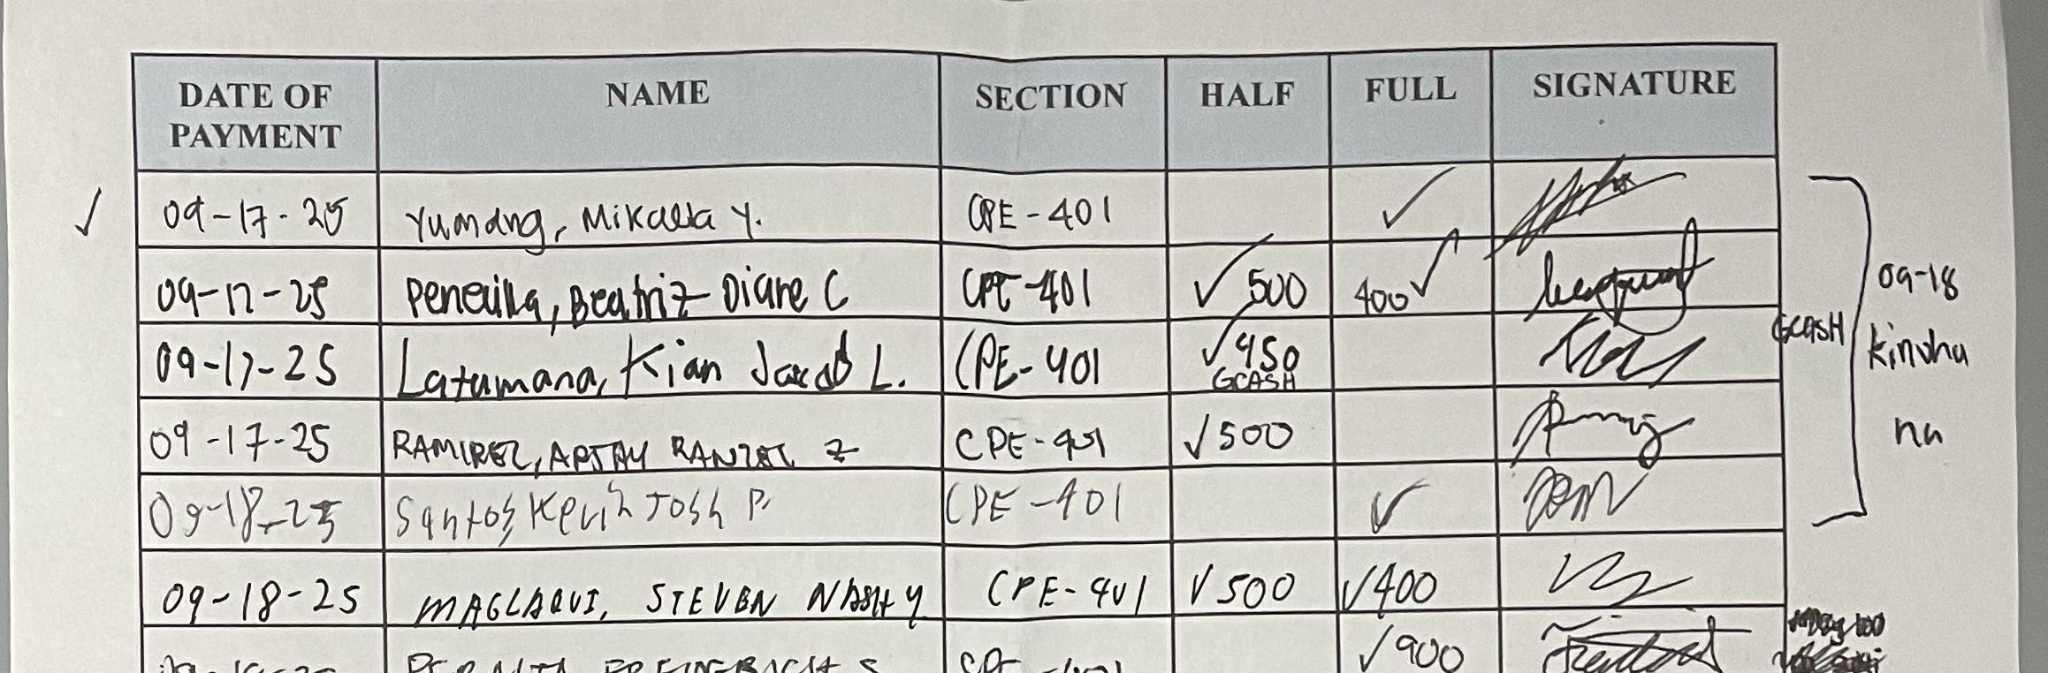 DATE OF PAYMENT NAME SECTION HALF FULL SIGNATURE
✓ 09-17-25 Yumang, Mikaela Y. CPE-401 ✓
09-17-25 Penecilla, Beatriz Diane C CPE-401 ✓ 500 400 ✓
09-17-25 Latumana, Kian Jacob L. CPE-401 ✓ 450 GCASH
GCASH
09-17-25 RAMIREZ, RANZEL Z CPE-401 ✓ 500
09-18-25 Santos, Kevin Josh P. CPE-401 ✓
09-18-25 MAGLAQUI, STEVEN NASH Y CPE-401 ✓ 500 ✓ 400
CPE ✓ 900
09-18
kinuha
na